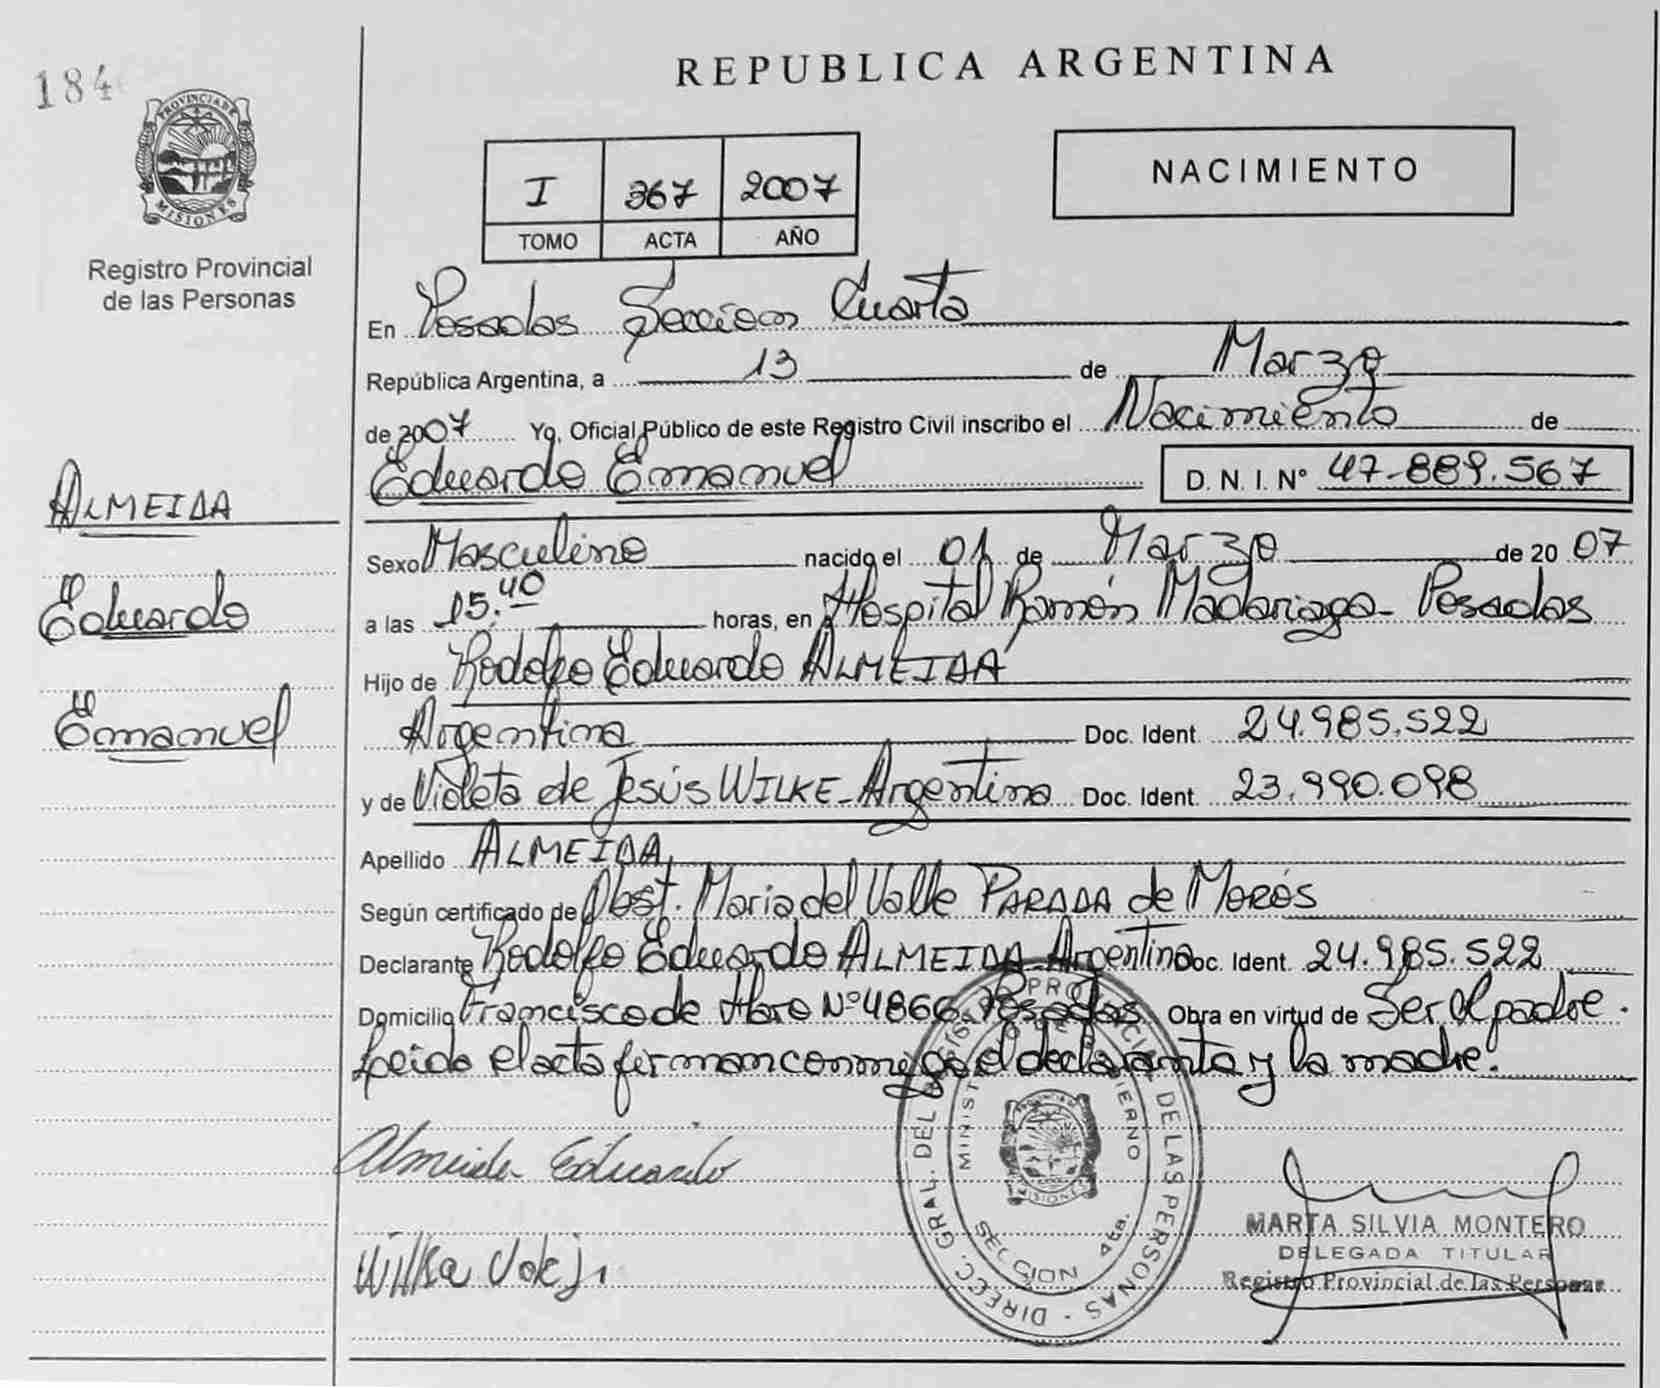 184
PROVINCIA DE
MISIONES
Registro Provincial
de las Personas
REPUBLICA ARGENTINA
I 367 2007
TOMO ACTA AÑO
NACIMIENTO
En Posadas Seccion Cuarta
República Argentina, a 13 de Marzo
de 2007 Yo, Oficial Público de este Registro Civil inscribo el Nacimiento de
Eduardo Emanuel D. N. I. Nº 47.889.567
ALMEIDA
Eduardo
Emanuel
Sexo Masculino nacido el 01 de Marzo de 20 07
a las 15.40 horas, en Hospital Ramón Madariaga - Posadas
Hijo de Rodolfo Eduardo ALMEIDA
Argentina Doc. Ident. 24.985.522
y de Violeta de Jesús WILKE - Argentina Doc. Ident. 23.990.098
Apellido ALMEIDA
Según certificado de Obst. Maria del Valle PARADA de MOROS
Declarante Rodolfo Eduardo ALMEIDA - Argentina Doc. Ident. 24.985.522
Domicilio Francisco de Haro Nº 4866 Posadas Obra en virtud de Ser el padre.
Leida el acta firman conmigo el declarante y la madre.
Almeida Eduardo
DIRECC. GRAL. DEL PROVINCIAL DE LAS PERSONAS
GOBIERNO
SECCION 4ta.
MISIONES
MARTA SILVIA MONTERO
DELEGADA TITULAR
Registro Provincial de las Personas